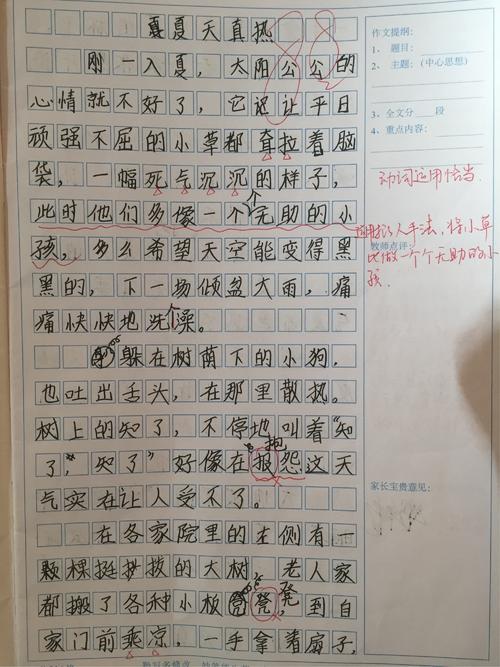 夏夏天真热
刚一入夏，太阳公公的
心情就不好了，它还让平日
顽强不屈的小草都耷拉着脑
袋，一幅死气沉沉的样子，
此时他们多像一个个无助的小
孩，多么希望天空能变得黑
黑的，下一场倾盆大雨，痛
痛快快地洗个澡。
躲在树荫下的小狗，
也吐出舌头，在那里散热。
树上的知了，不停地叫着“知
抱
了，”知了”好像在报怨这天
气实在让人受不了。
在各家院里的左侧有一
颗棵挺拔的大树，老人家
凳
都搬了各种小板凳，到自
家门前乘凉，一手拿着扇子，
作文提纲:
1、题目:
2、主题:（中心思想）
3、全文分 段
4、重点内容:
动词运用恰当.
教师点评:
人手法,将小草
比做一个个无助的小
孩.
家长宝贵意见: